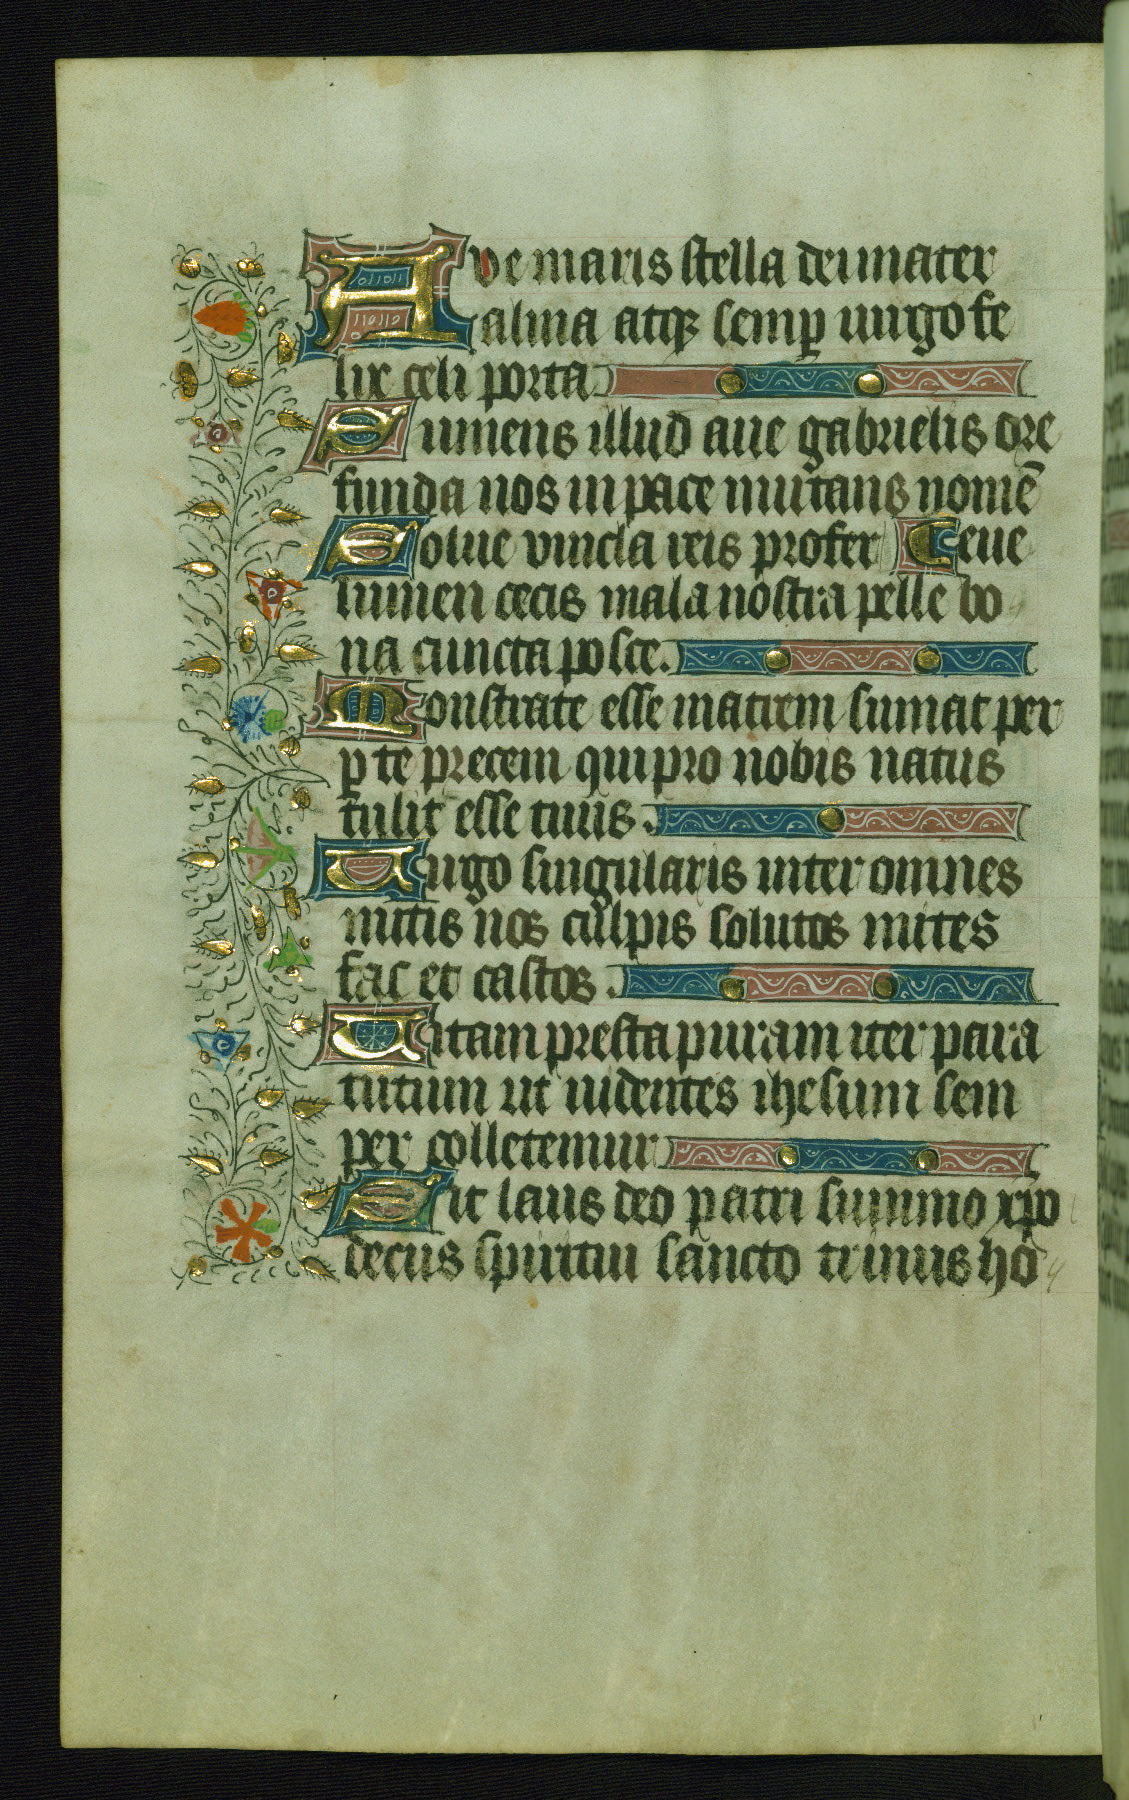 Ave maris stella dei mater
alma atqz semp uirgo fe
lix celi porta
Sumens illud aue gabrielis ore
funda nos in pace mutans nomē
Solue vincla reis profer Leue
lumen cecis mala nostra pelle bo
na cuncta posce.
Monstrate esse matrem sumat per
p te precem qui pro nobis natus
tulit esse tuus.
Uirgo singularis inter omnes
mitis nos culpis solutos mites
fac et castos.
Uitam presta puram iter para
tutum ut uidentes ihesum sem
per colletemur
Sit laus deo patri summo xpo
decus spiritui sancto trinus ho